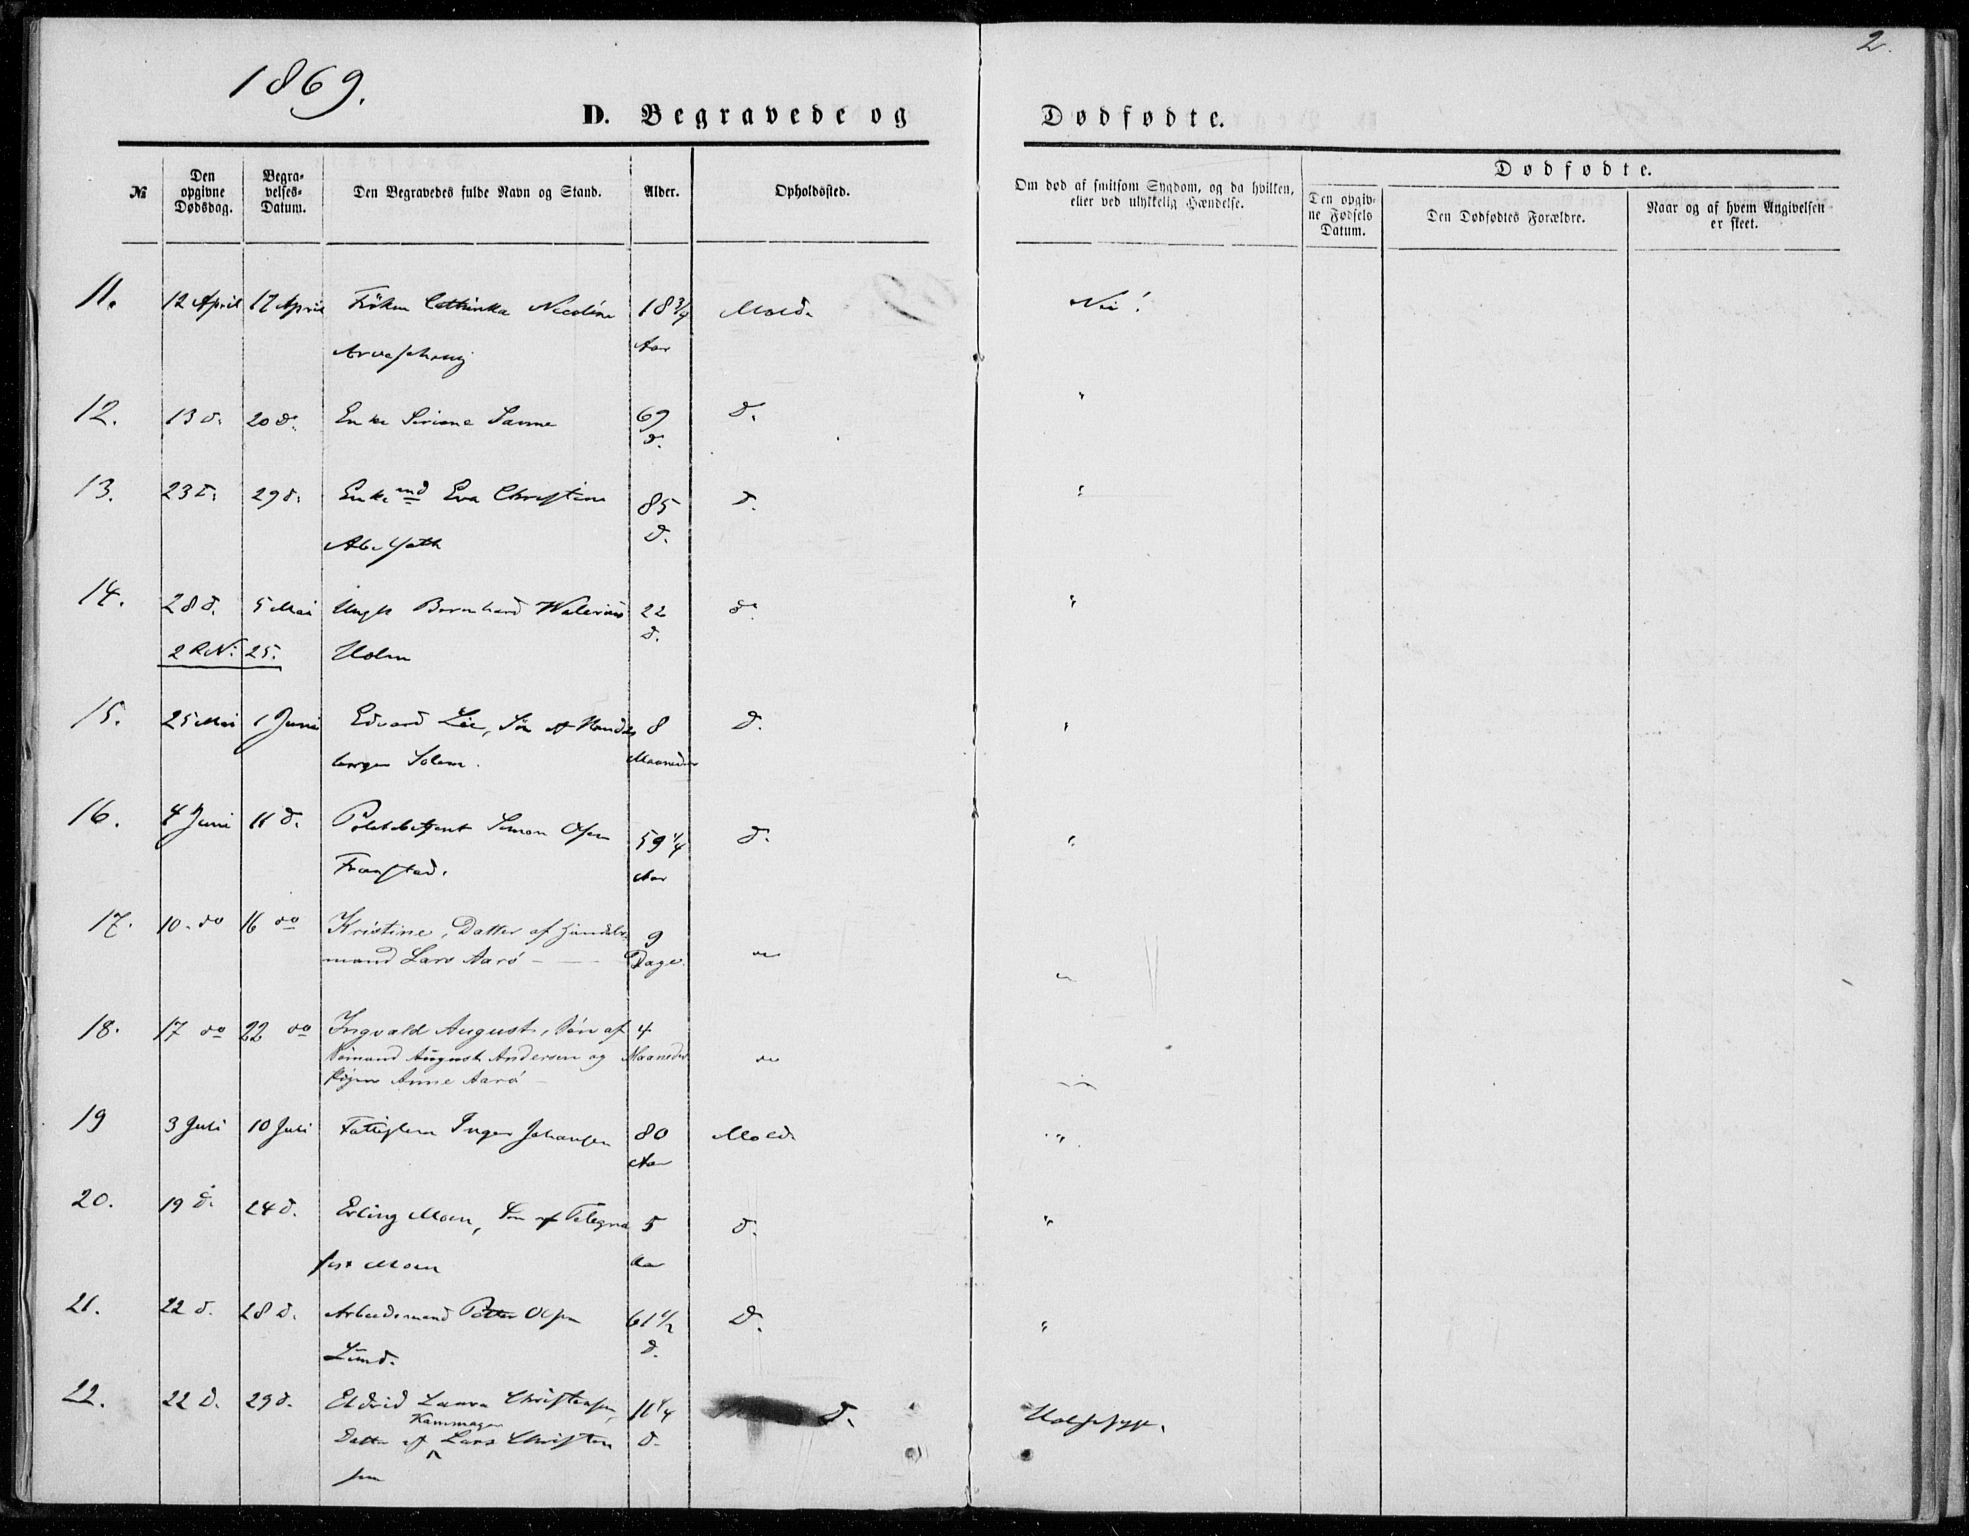 1869.
2.
D. Begravede og Dødfødte.
№
Den opgivne Dødsdag.
Begravelses-Datum.
Den Begravedes fulde Navn og Stand.
Alder.
Opholdssted.
Om død af smitsom Sygdom, og da hvilken, eller ved ulykkelig Hændelse.
Dødfødte.
Den opgivne Fødsels Datum.
Den Dødfødtes Forældre.
Naar og af hvem Angivelsen er skeet.
11. 12 April 17 April Frøken Cathinka Nicoline 18 3/4 Molde Nei!
Aar
12. 13 d. 20 d. Enke 69 d. "
d.
13. 23 d. 29 d. Enkemd Eva Christine 85 d. "
d.
14. 28 d. 5 Mai Ungk Bernhard Walerius 22 d. "
2 R N: 25. Holm d.
15. 25 Mai 1 Juni Edvard Lie, Søn af Handels 8 d. "
borger Solem. Maaneder
16. 4 Juni 11 d. Politibetjent Simon Olsen 59 1/4 d. "
Aar
17. 10. do 16 do Kristine, Datter af Handels- 9 " "
mand Lars Aarø — — Dage.
18. 17 do 22 do Ingvald August, Søn af 4
Sømand August Andersen og Maaneder "
Pigen Anne Aarø — "
19 3 Juli 10 Juli Fattiglem Inger Johansen 80 Molde "
Aar
20. 19 d. 24 d. Erling Moen, Søn af Telegra 5 d. "
fist Moen Aar
21. 22 d. 28 d. Arbeidsmand Petter Olsen 61 1/2 d. "
Lund. d.
22. 22 d. 29 d. Eldrid Laura Christensen, 11 1/4 d. Halssyge.
Kammager
Datter af Lars Christen d.
sen